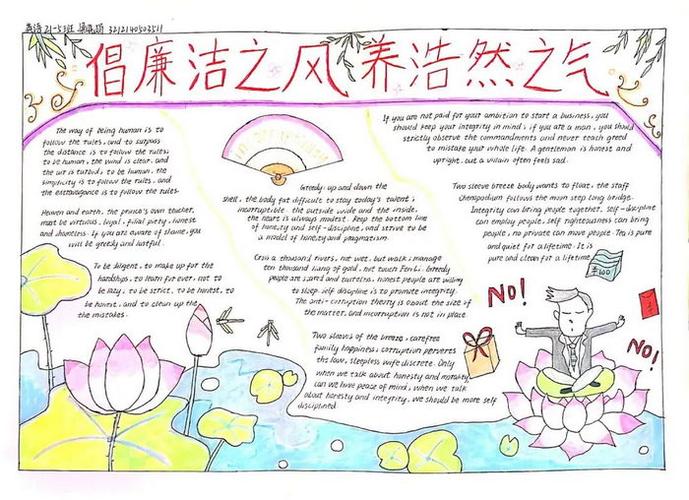 英语21-5班 3212140503511
倡廉洁之风养浩然之气
The way of being human is to
follow the rules, and to surpass
the distance is to follow the rules;
to be human, the wind is clear, and
the air is turbid; to be human, the
simplicity is to follow the rules, and
the extravagance is to follow the rules.
Heaven and earth, the prince's own teacher,
must be virtuous, loyal, filial piety, honest
and shameless. If you are aware of shame, you
will be greedy and lustful.
To be diligent, to make up for the
hardships, to learn for ever, not to
be lazy, to be strict, to be honest, to
be honest, and to clean up the
the mistakes.
Greedy, up and down the
shell, the body fat difficult to stay today's talent;
incorruptible, the outside wide and the inside,
the heart is always modest. Keep the bottom line
of honesty and self-discipline, and strive to be
a model of honesty and pragmatism.
thousand rivers, not wet, but walk; manage
ten thousand liang of gold, not touch Fen Li. Greedy
people are scared and honest people are willing
to sleep. self discipline is to promote integrity.
The anti-corruption theory is about the size of
the matter, and incorruption is not in place.
Two sleeves of the breeze, carefree
family happiness; corruption perverts
the law, sleepless wife discrete. Only
when we talk about honesty and morality
can we have peace of mind; when we talk
about honesty and integrity, we should be more self
disciplined.
If you are not paid for your ambition to start a business, you
should keep your integrity in mind; if you are a man, you should
strictly observe the commandments and never teach greed
to mistake your whole life. A gentleman is honest and
upright, but a villain often feels sad.
Two sleeve breeze body wants to float, the staff
Chenopodium follows the moon step long bridge.
Integrity can bring people together, self-discipline
can employ people, self righteousness can bring
people, no private can move people. Tea is pure
and quiet for a lifetime. It is
pure and clean for a lifetime
¥100
NO!
NO!